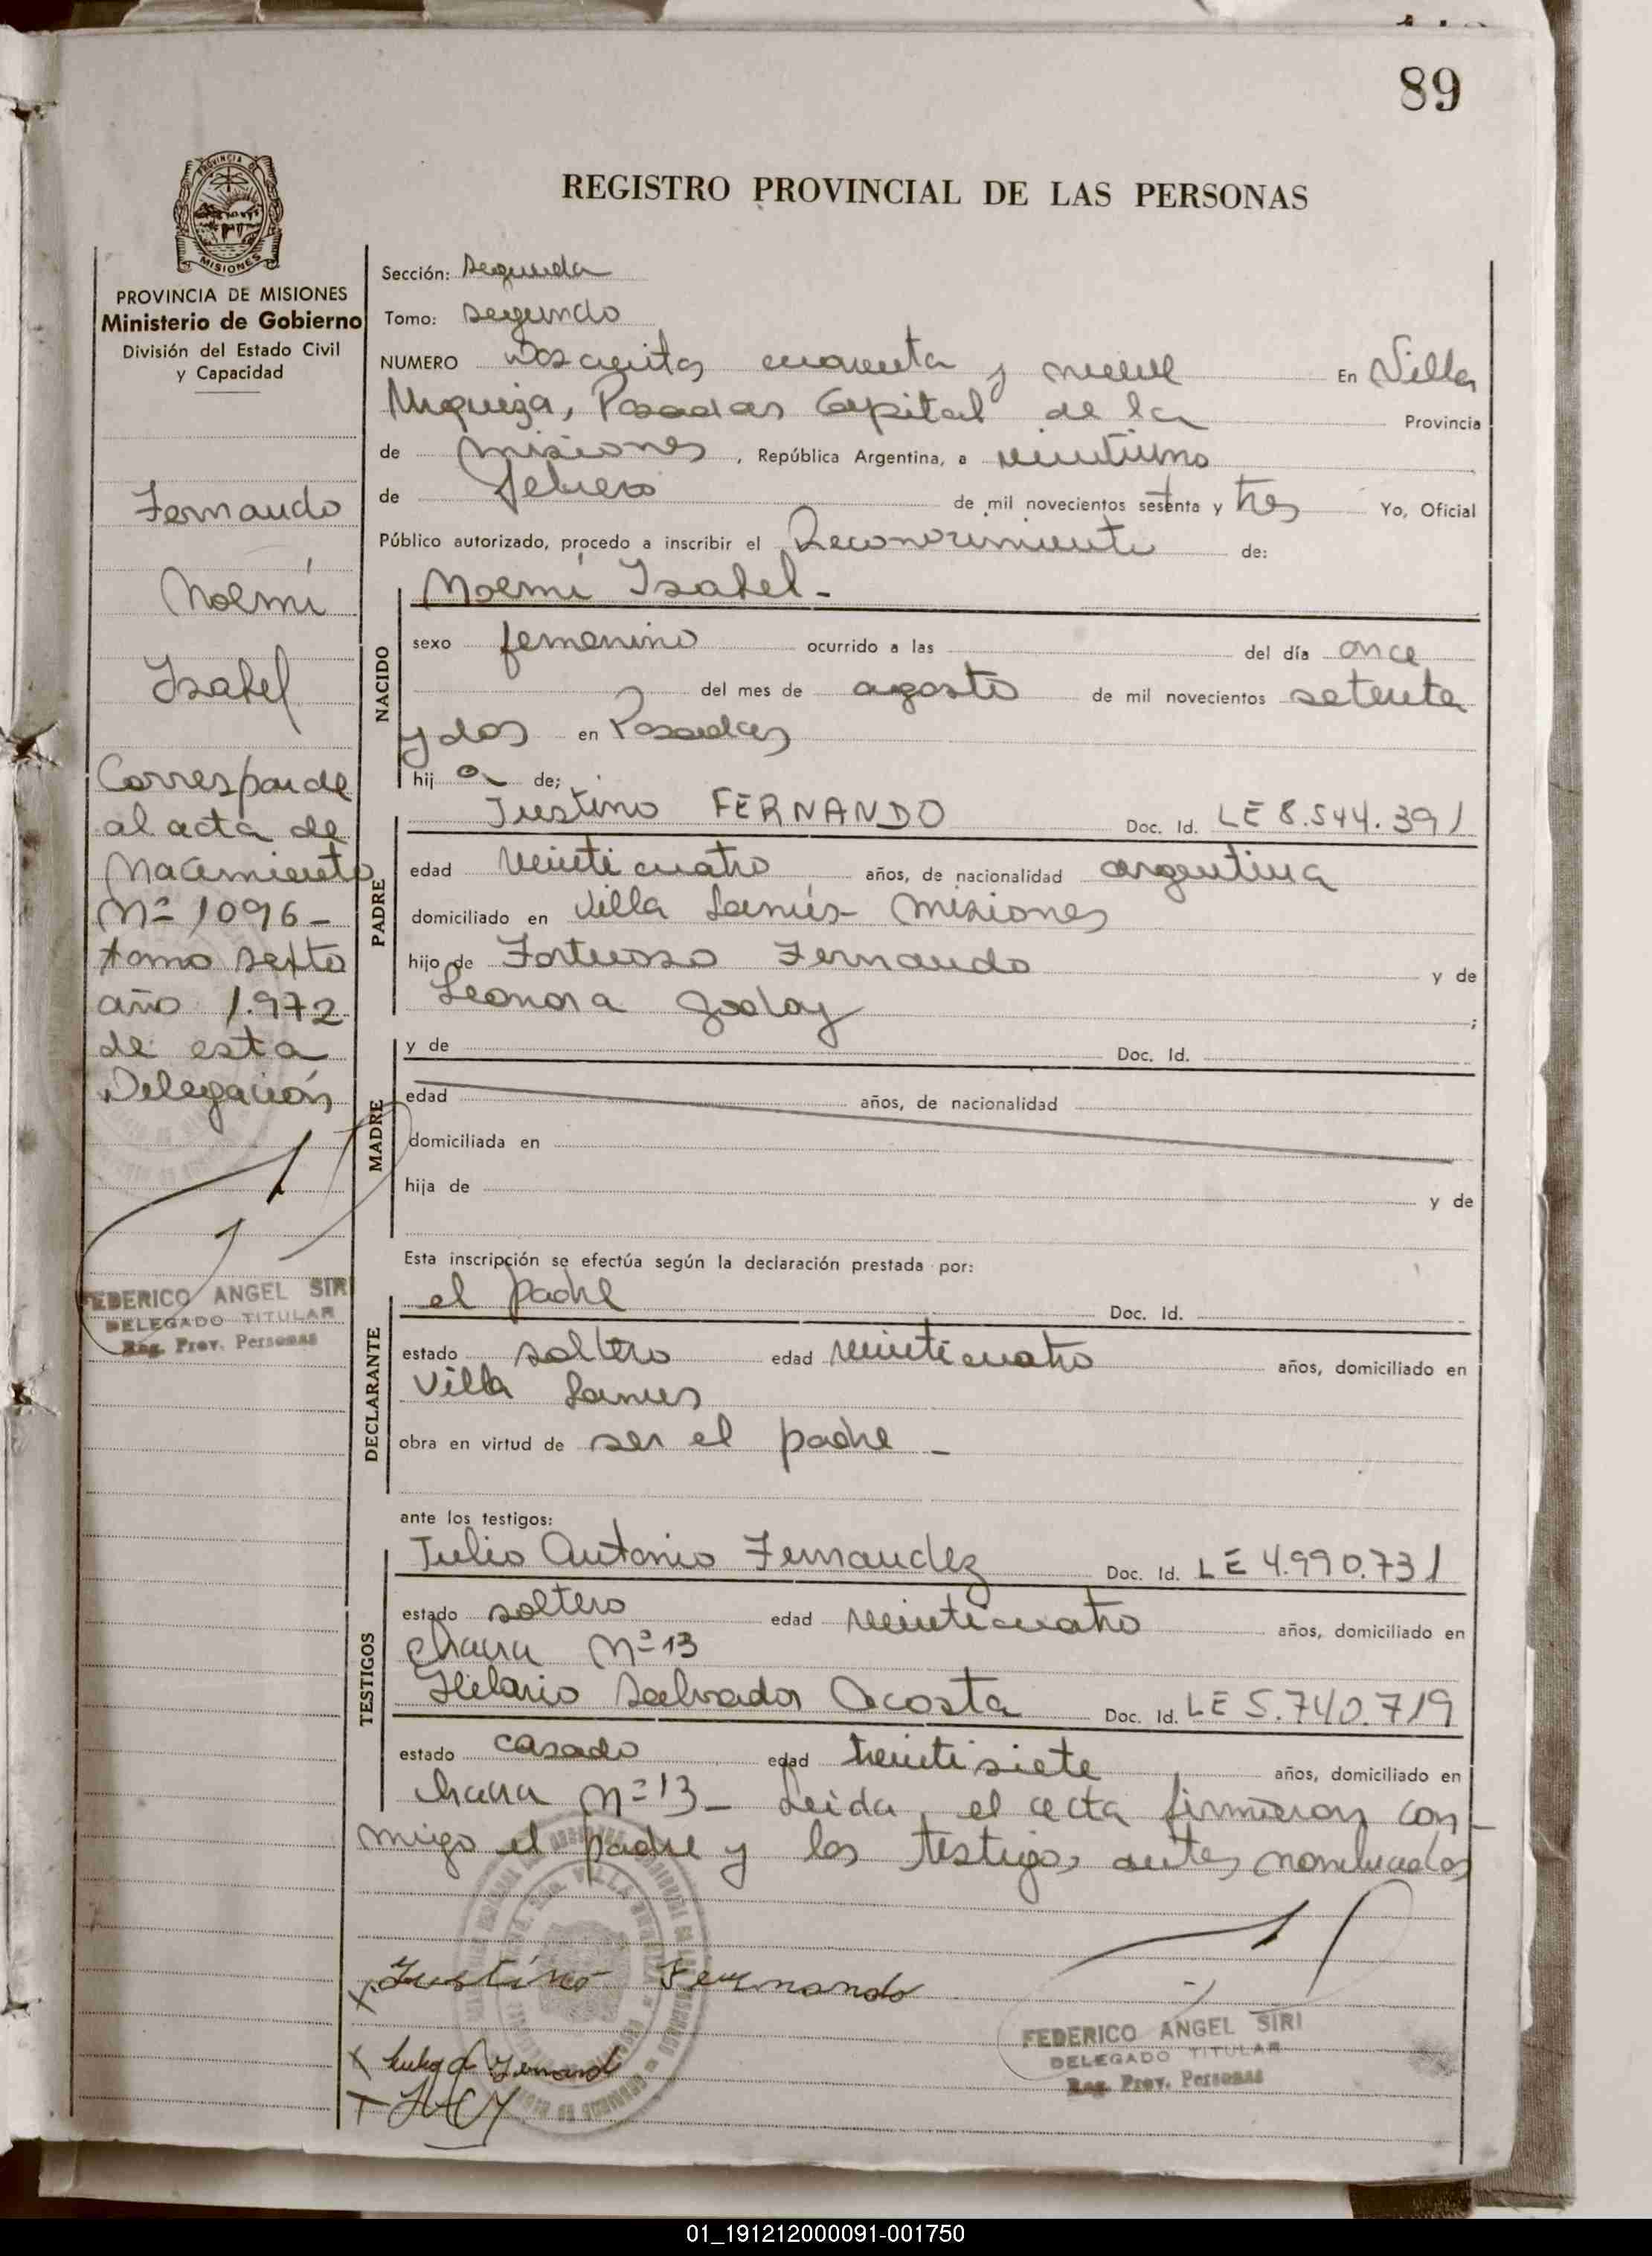 89
PROVINCIA DE
MISIONES
PROVINCIA DE MISIONES
Ministerio de Gobierno
División del Estado Civil
y Capacidad
Fernando
Noemí
Isabel
Corresponde
al acta de
Nacimiento
Nº 1096-
tomo sexto
año 1.972
de esta
Delegación
FEDERICO ANGEL SIRI
DELEGADO TITULAR
Reg. Prov. Personas
REGISTRO PROVINCIAL DE LAS PERSONAS
Sección: segunda
Tomo: segundo
NUMERO Doscientos cuarenta y nueve En Villa
Urquiza, Posadas Capital de la Provincia
de Misiones, República Argentina, a veintiuno
de febrero de mil novecientos setenta y tres Yo, Oficial
Público autorizado, procedo a inscribir el Reconocimiento de:
NACIDO
Noemí Isabel-
sexo femenino ocurrido a las del día once
del mes de agosto de mil novecientos setenta
y dos en Posadas
hij a de;
PADRE
Justino FERNANDO Doc. Id. LE 8.544.391
edad veinticuatro años, de nacionalidad argentina
domiciliado en Villa Lanús- Misiones
hijo de Fortuoso Fernando y de
Leonora Godoy ;
MADRE
y de Doc. Id.
edad años, de nacionalidad
domiciliada en
hija de y de
Esta inscripción se efectúa según la declaración prestada por:
DECLARANTE
el padre Doc. Id.
estado soltero edad veinticuatro años, domiciliado en
Villa Lanus
obra en virtud de ser el padre -
ante los testigos:
TESTIGOS
Julio Antonio Fernandez Doc. Id. LE 4.990.731
estado soltero edad veinticuatro años, domiciliado en
chacra Nº 13
Hilario Salvador Acosta Doc. Id. LE 5.740.719
estado casado edad treintisiete años, domiciliado en
chacra Nº 13- Leida, el acta firmaron con-
migo el padre y los testigos antes nombrados
x Justino Fernando
x
FEDERICO ANGEL SIRI
DELEGADO TITULAR
Reg. Prov. Personas
01_191212000091-001750